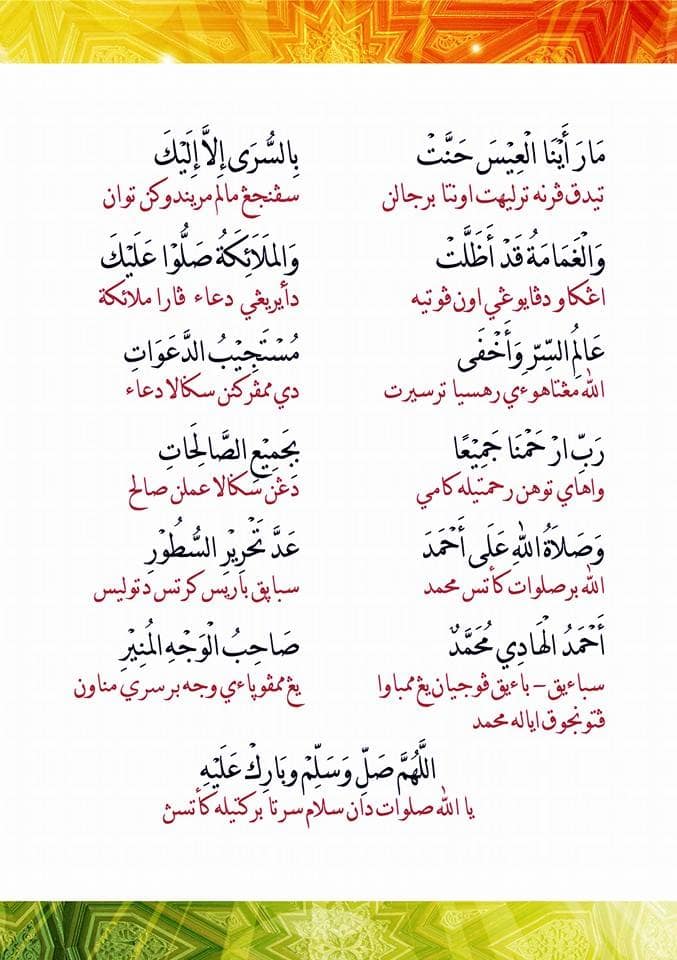 مَا رَأَيْنَا الْعِيْسَ حَنَّتْ بِالسُّرَى إِلَّا إِلَيْكَ
تيدق ڤرنه ترليهت اونتا برجالن سڤنجڠ مالم مريندوكن توان
وَالْغَمَامَةُ قَدْ أَظَلَّتْ وَالْمَلَائِكَةُ صَلُّوْا عَلَيْكَ
اڠكاو دڤايوڠي اون ڤوتيه دأيريڠي دعاء ڤارا ملائكة
عَالِمُ السِّرِّ وَأَخْفَى مُسْتَجِيْبُ الدَّعَوَاتِ
الله مڠتاهوءي رهسيا ترسيرت دي ممڤركنن سݢالا دعاء
رَبِّ ارْحَمْنَا جَمِيْعًا بِجَمِيْعِ الصَّالِحَاتِ
واهاي توهن رحمتيله كامي دڠن سݢالا عملن صالح
وَصَلَاةُ اللهِ عَلَى أَحْمَدَ عَدَّ تَحْرِيْرِ السُّطُوْرِ
الله برصلوات كأتس محمد سباڽق باريس كرتس دتوليس
أَحْمَدُ الْهَادِي مُحَمَّدٌ صَاحِبُ الْوَجْهِ الْمُنِيْرِ
سباءيق – باءيق ڤوجيان يڠ ممباوا يڠ ممڤوڽاءي وجه برسري مناون
ڤتونجوق اياله محمد
اللَّهُمَّ صَلِّ وَسَلِّمْ وبَارِكْ عَلَيْهِ
يا الله صلوات دان سلام سرتا بركتيله كأتسڽ